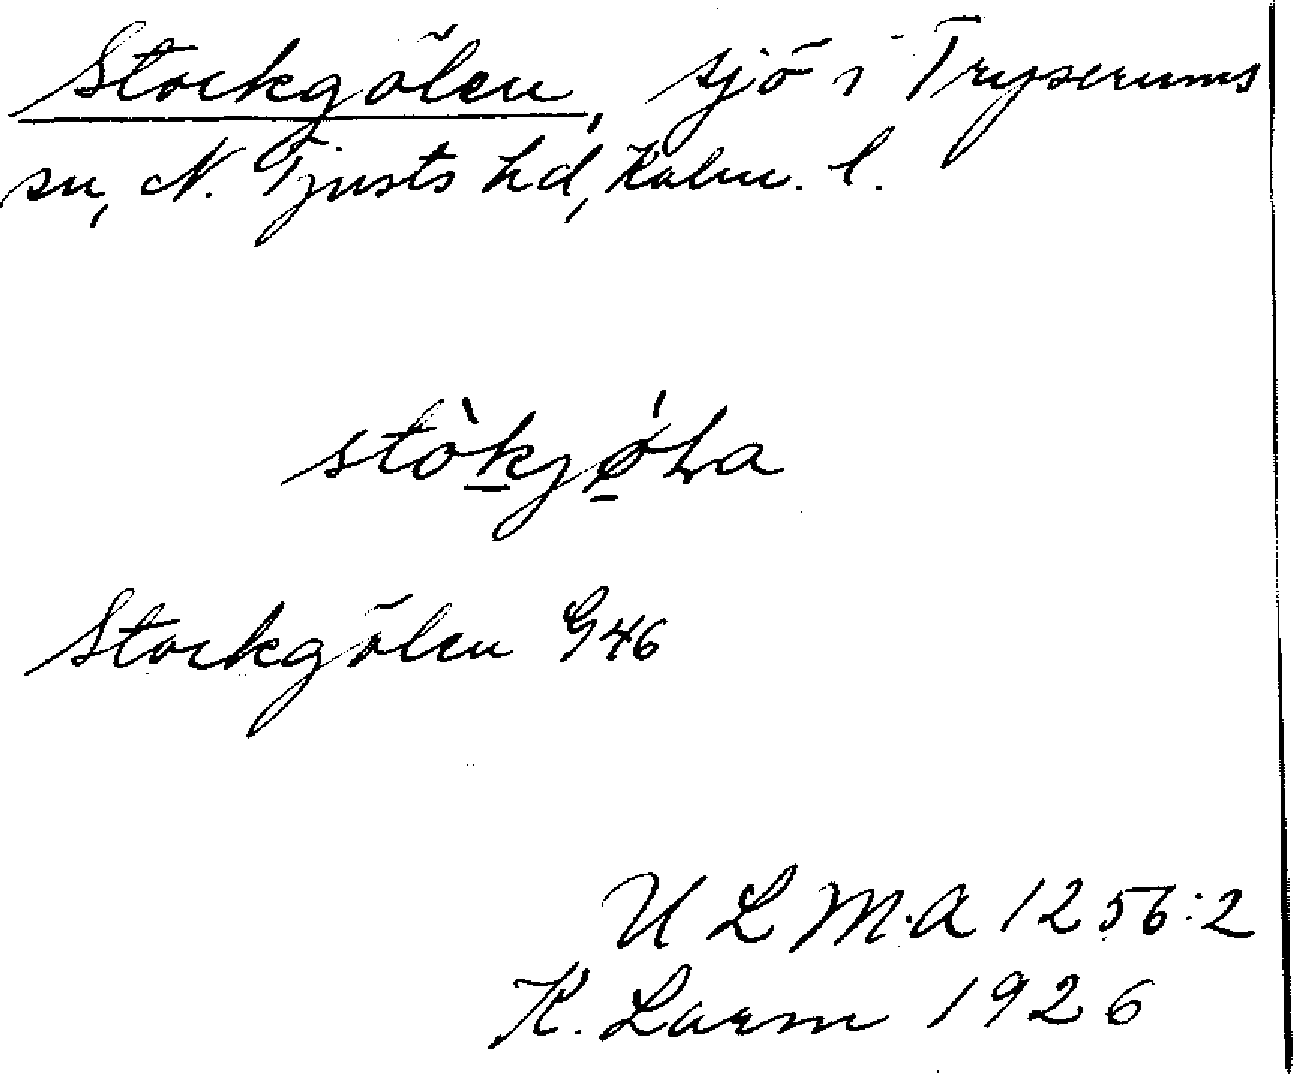 Stockgölen, sjö i Tryserums
sn, N. Tjusts hd, Kalm. l.
stòkjø̀La
Stockgölen G46
ULMA 1256:2
K. Laxm 1926